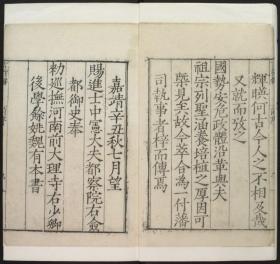 輝暎何古今人之不相及哉
又就而攷之
國勢安危政體沿革與夫
祖宗列聖涵養培植之厚固可
槩見至故合萃合為一付藩
司執事者梓而傳焉
嘉靖辛丑秋七月望
賜進士中憲大夫都察院右僉
都御史奉
勑巡撫河南前大理寺右少卿
後學餘姚魏有本書